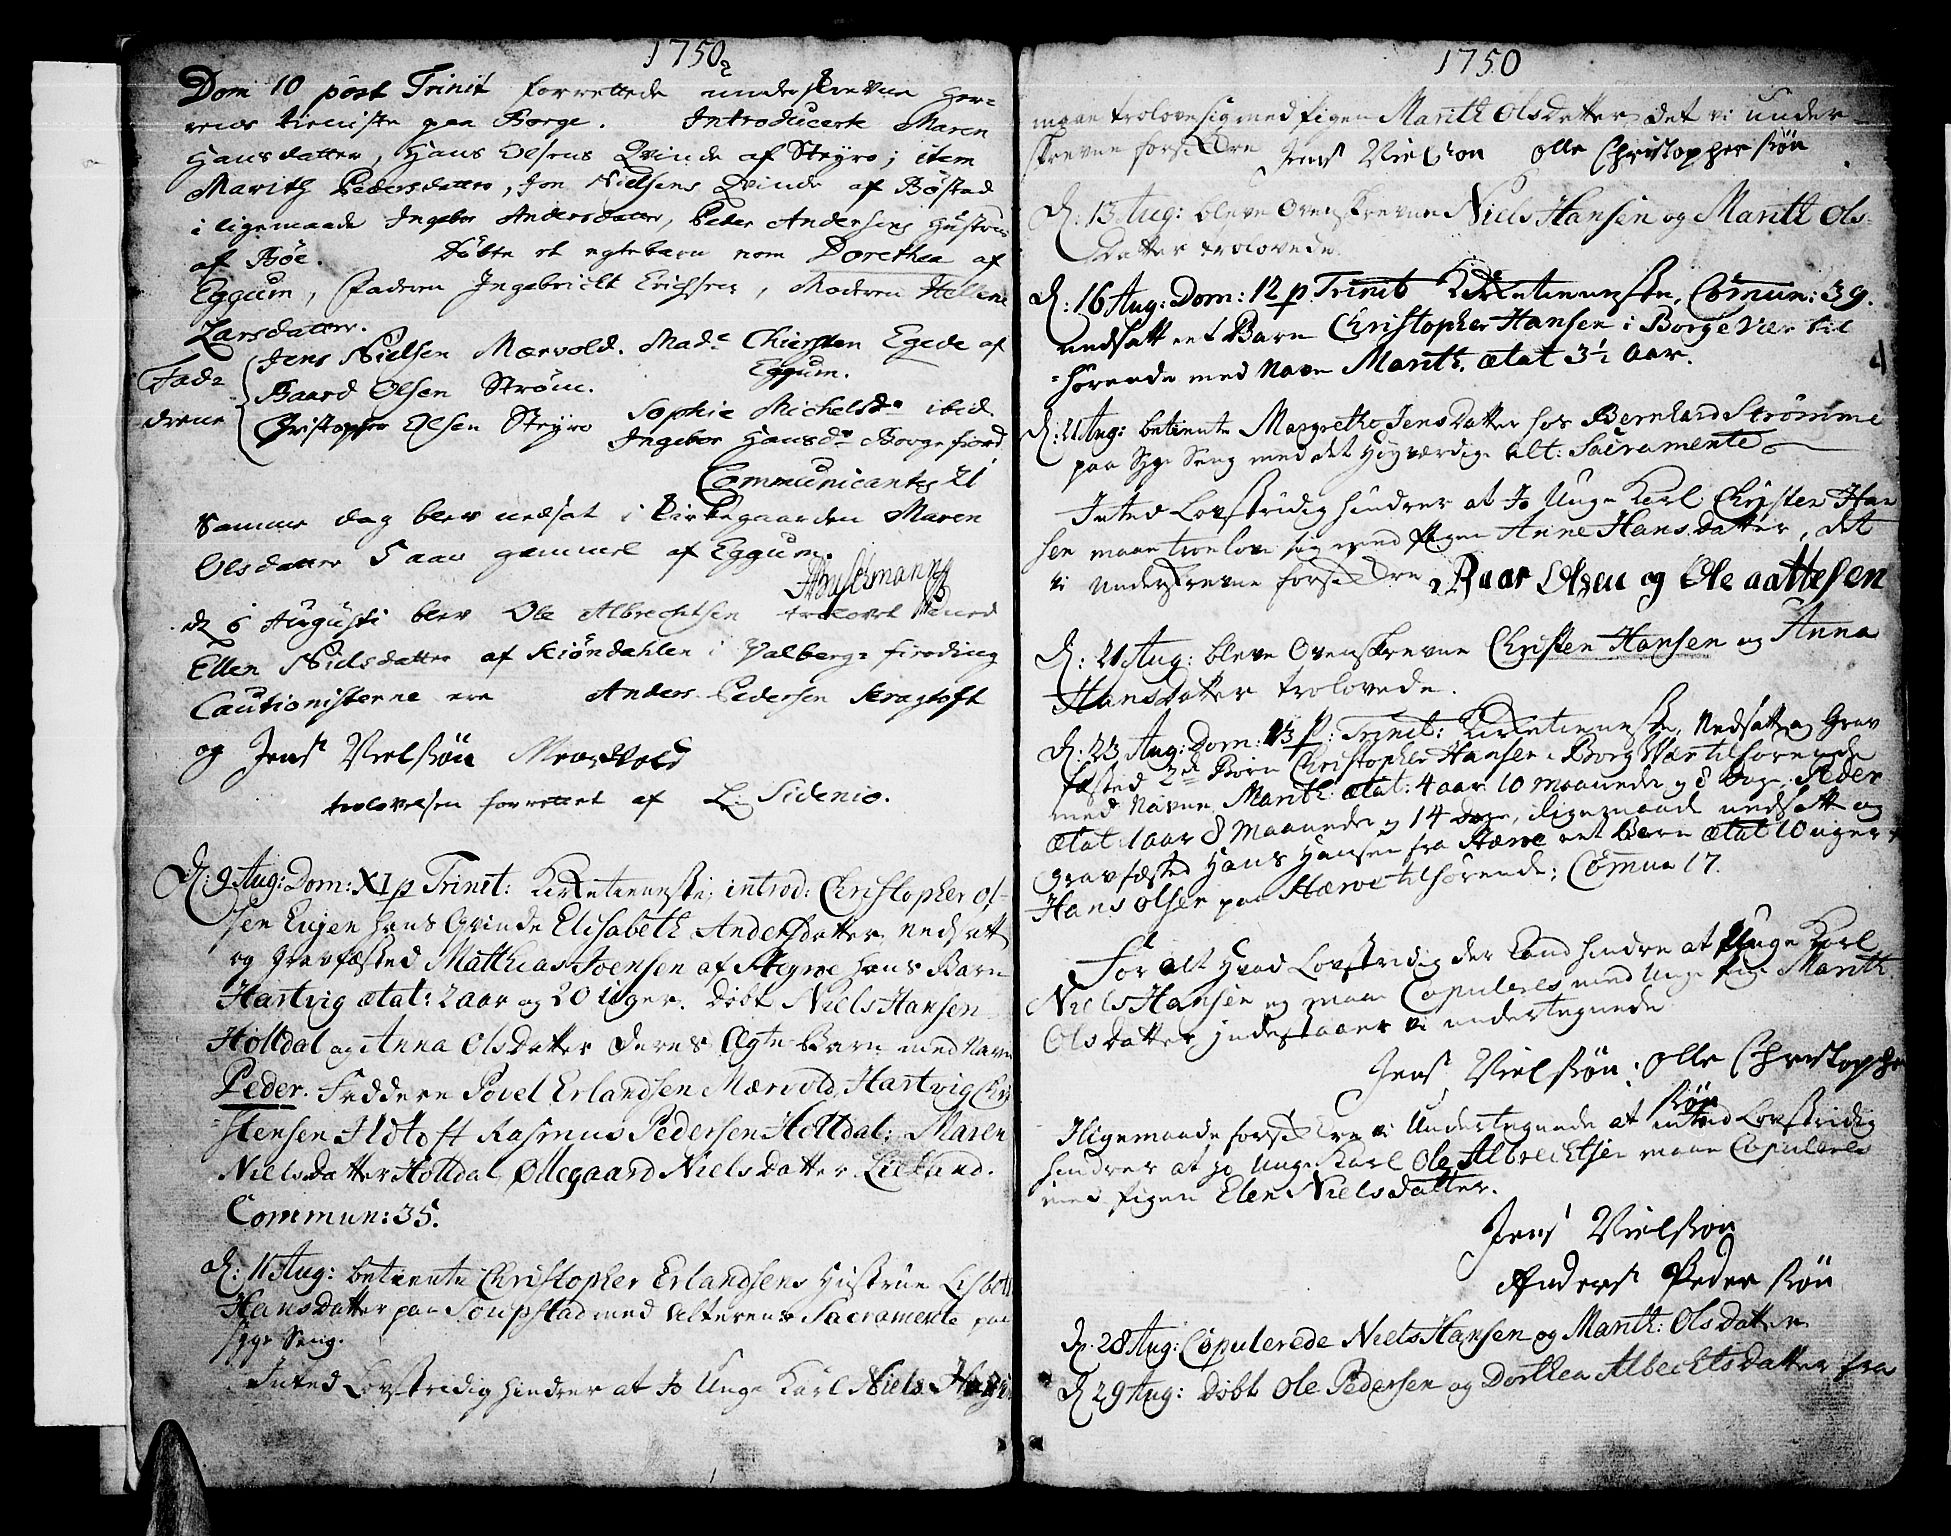 1750
Dom 10 post Trinit forrettede underskrevne Her-
rens tieniste paa Borge. Introducerte Maren
Hansdatter, Hans Olsens Qvinde af Steyro; item
Marith Pedersdatter, Jon Nielsens Qvinde af Böstad
i ligemaade Ingebor Andersdatter, Peder Andersens Hustrue
af Böe. Döbte et egtebarn nom Dorethea af
Eggum, Faderen Ingebricht Erichsen, Moderen Hellene
Larsdatter.
Jens Nielsen Mærvold. Mad: Chiersten Egede af
Fad- Baard Olsen Ström. Eggum.
drene Christopher Olsen Steyro Sophie Michelsd: ibid
Ingebor Hansd: Borgefiord
Communicantes 21
Samme dag blev nedsat i Kirkegaarden Maren
Olsdatter 5 aar gammel af Eggum.
d 6 Augusti blev Ole Albrechtsen trolovet med
Ellen Nielsdatter af Kiöndahlen i Valberg fierding
Cautionisterne ere Anders Pedersen Kragtoft
og Jens Nielsøn Mærvold
trolovelsen forrettet af L: Sidenio.
D: 9 Aug: Dom: XI p Trinit: Kirketieneste, introd: Christopher Ol-
sen Eujen hans Qvinde Elisabeth Andersdatter, nedsatt
og gravfæsted Matthias Joensen af Steyroe hans Barn
Hartvig ætat: 2 aar og 20 Uger. Döbt Niels Hansen
Holldal og Anna Olsdatter deres Ægte Barn med Navn
Peder. Faddere Povel Erlandsen Mærvold, Hartvig Chri
stensen Holtoft Rasmus Pedersen Holldal; Maren
Nielsdatter Holldal Øllegaard Nielsdatter Lieland.
Commun: 35.
D: 11 Aug: betiente Christopher Erlandsens Hustrue Lisbeth
Hansdatter paa Soupstad med Alterens Sacramente paa
Syge Seng.
Inted Lovstridig hindrer at jo Unge Karl Niels Hansen
1750
maae trolove sig med Pigen Marith Olsdatter, det vi under
skrevne forsickre Jens Nielsøn Olle Christophersøn
D: 13 Aug: bleve Ovenskrevne Niels Hansen og Marith Ols-
datter trolovede.
D: 16 Aug: Dom: 12 p. Trinit Kirketieneste, Comun: 39.
nedsatt et Barn Christopher Hansen i Borge Vær til
hörende med Navn Marith. ætat 3½ Aar.
D: 21 Aug: betiente Margrethe Jensdatter hos Bernhard Strömme
paa Syge Seng med det Høyværdige Alt: Sacramente
Inted Lovstridig hindrer at jo Unge Karl Christen Han
sen maae troelove sig med Pigen Anne Hansdatter, det
vi underskrevne forsickre Baar Olsen og Ole
D: 21 Aug: bleve Ovenskrevne Christen Hansen og Anna
Hansdatter trolovede.
D: 23 Aug: Dom: 13 P: Trinit: Kirketieneste, Nedsatt og Grav
fæsted 2de Börn Christopher Hansen i Borg Vær tilhörende
med Navne Marith: ætat: 4 aar 10 Maaneder og 8 Dage; Peder
ætat: 1 aar 8 Maaneder og 14 Dage, iligemaade nedsatt og
gravfæsted Hans Hansen fra Hærve eet Barn ætat 10 uger
Hans Olsen paa Hærve tilhörende; Comun 17.
For alt hvad Lovstridig der kand hindre at Unge Karl
Niels Hansen ey maae Copuleres med Unge Pige Marith
Olsdatter, indestaaer vi undertegnede
Jens Nielsøn: Olle Christopher
søn
Iligemaade forsickre vi Undertegnede at inted Lovstridig
hindrer at jo Unge Karl Ole Albrechtsen maae Copuleres
med Pigen Elen Nielsdatter.
Jens Nielsøn
Anders Pedersøn
D. 28 Aug: Copulerede Niels Hansen og Marith: Olsdatter
D 29 Aug: döbt Ole Pedersen og Dorthea Albechtsdatter fra